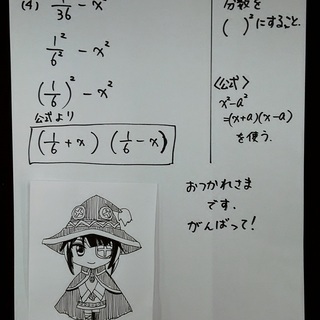 (4) 1/36 - x²
1²/6² - x²
(1/6)² - x²
公式より
(1/6 + x) (1/6 - x)
分数を
( )²にすること.
〈公式〉
x²-a²
=(x+a)(x-a)
を使う.
おつかれさま
です.
がんばって!